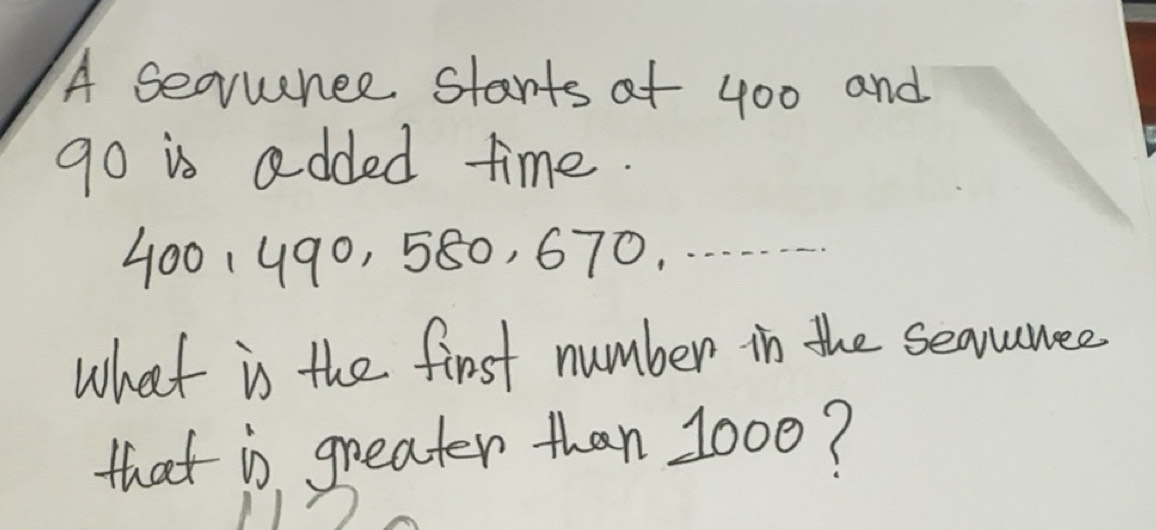 A sequence starts at 400 and
90 is added time.
400, 490, 580, 670, .........
What is the first number in the sequence
that is greater than 1000?